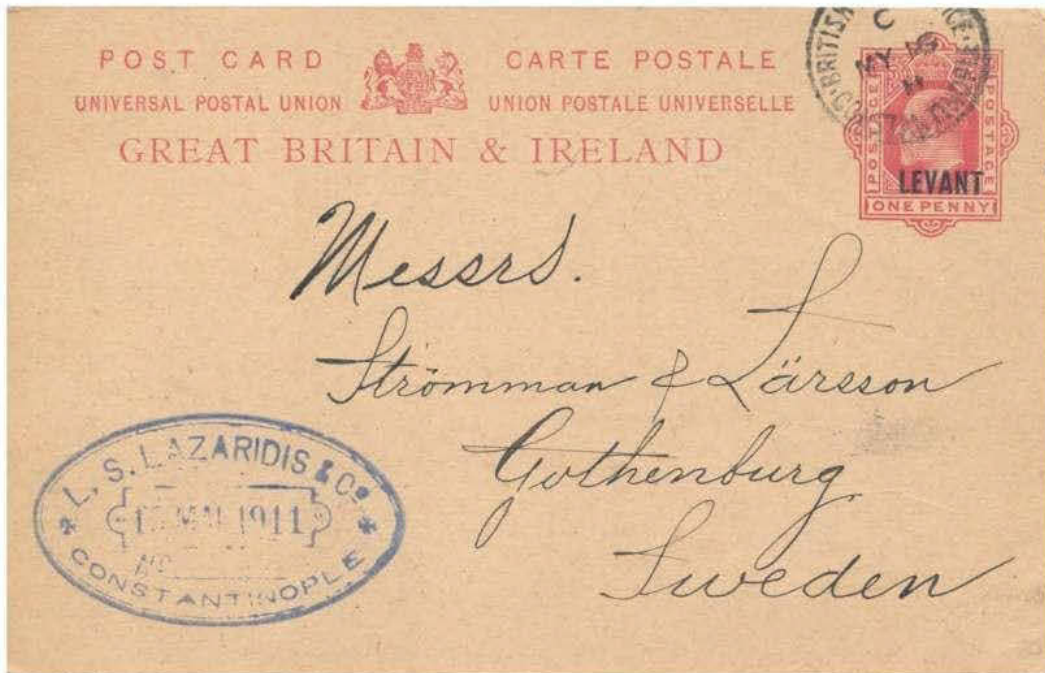 POST CARD CARTE POSTALE
UNIVERSAL POSTAL UNION UNION POSTALE UNIVERSELLE
GREAT BRITAIN & IRELAND
BRITISH
C
MY 19
11
POSTAGE POSTAGE
LEVANT
ONE PENNY
Messrs.
Strömman & Lärsson
Gothenburg
Sweden
L. S. LAZARIDIS & Co
MAI 1911
No
CONSTANTINOPLE